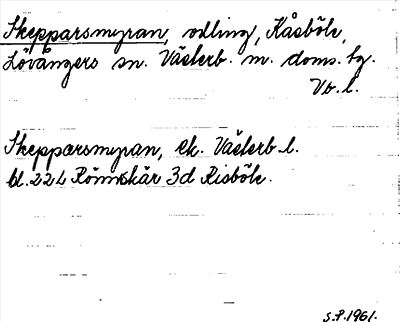 Skepparsmyran, odling, Kåsböle,
Lövångers sn. Västerb. m. doms. bg.
Vb. l.
Skepparsmyran, Ek. Västerb. l.
bl. 22L Rönnskär 3d Risböle.
S.P. 1961.